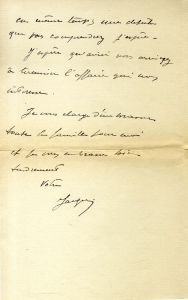 en même temps, une dépêche
que vous comprendrez j'espère.
J'espère qu'ainsi vous arriverez
à terminer l'affaire qui nous
intéresse.
Je vous charge d'embrasser
toute la famille pour moi
et je vous embrasse bien
tendrement
Votre